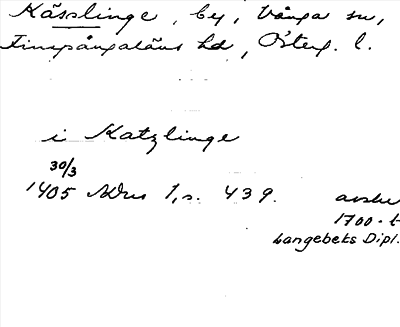 Kässlinge, by, Vånga sn,
Finspångaläns hd, Österg. l.
i Katzlinge
30/3
1405 NDns 1, s. 439. avskr
1700-t
Langebeks Dipl.